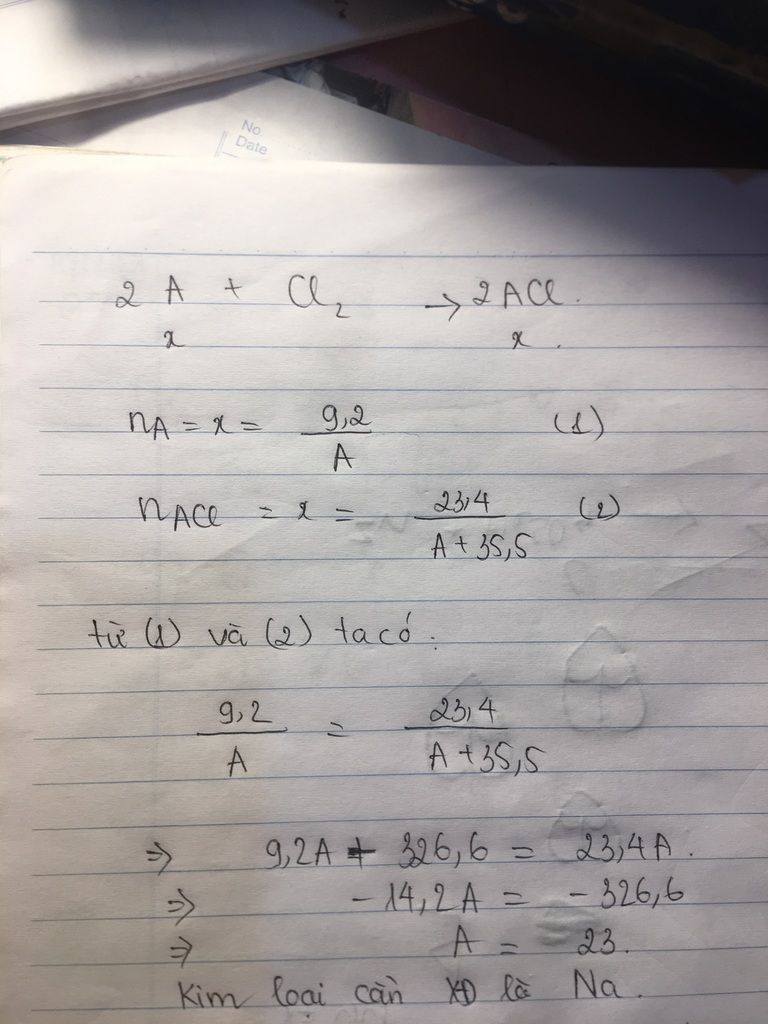 No.
Date
2 A + Cl₂ → 2ACl.
x x .
nA = x = 9,2 / A (1)
nACl = x = 23,4 / A + 35,5 (2)
từ (1) và (2) ta có :
9,2 / A = 23,4 / A + 35,5
⇒ 9,2A + 326,6 = 23,4A.
⇒ - 14,2A = - 326,6
⇒ A = 23.
Kim loại cần XĐ là Na.